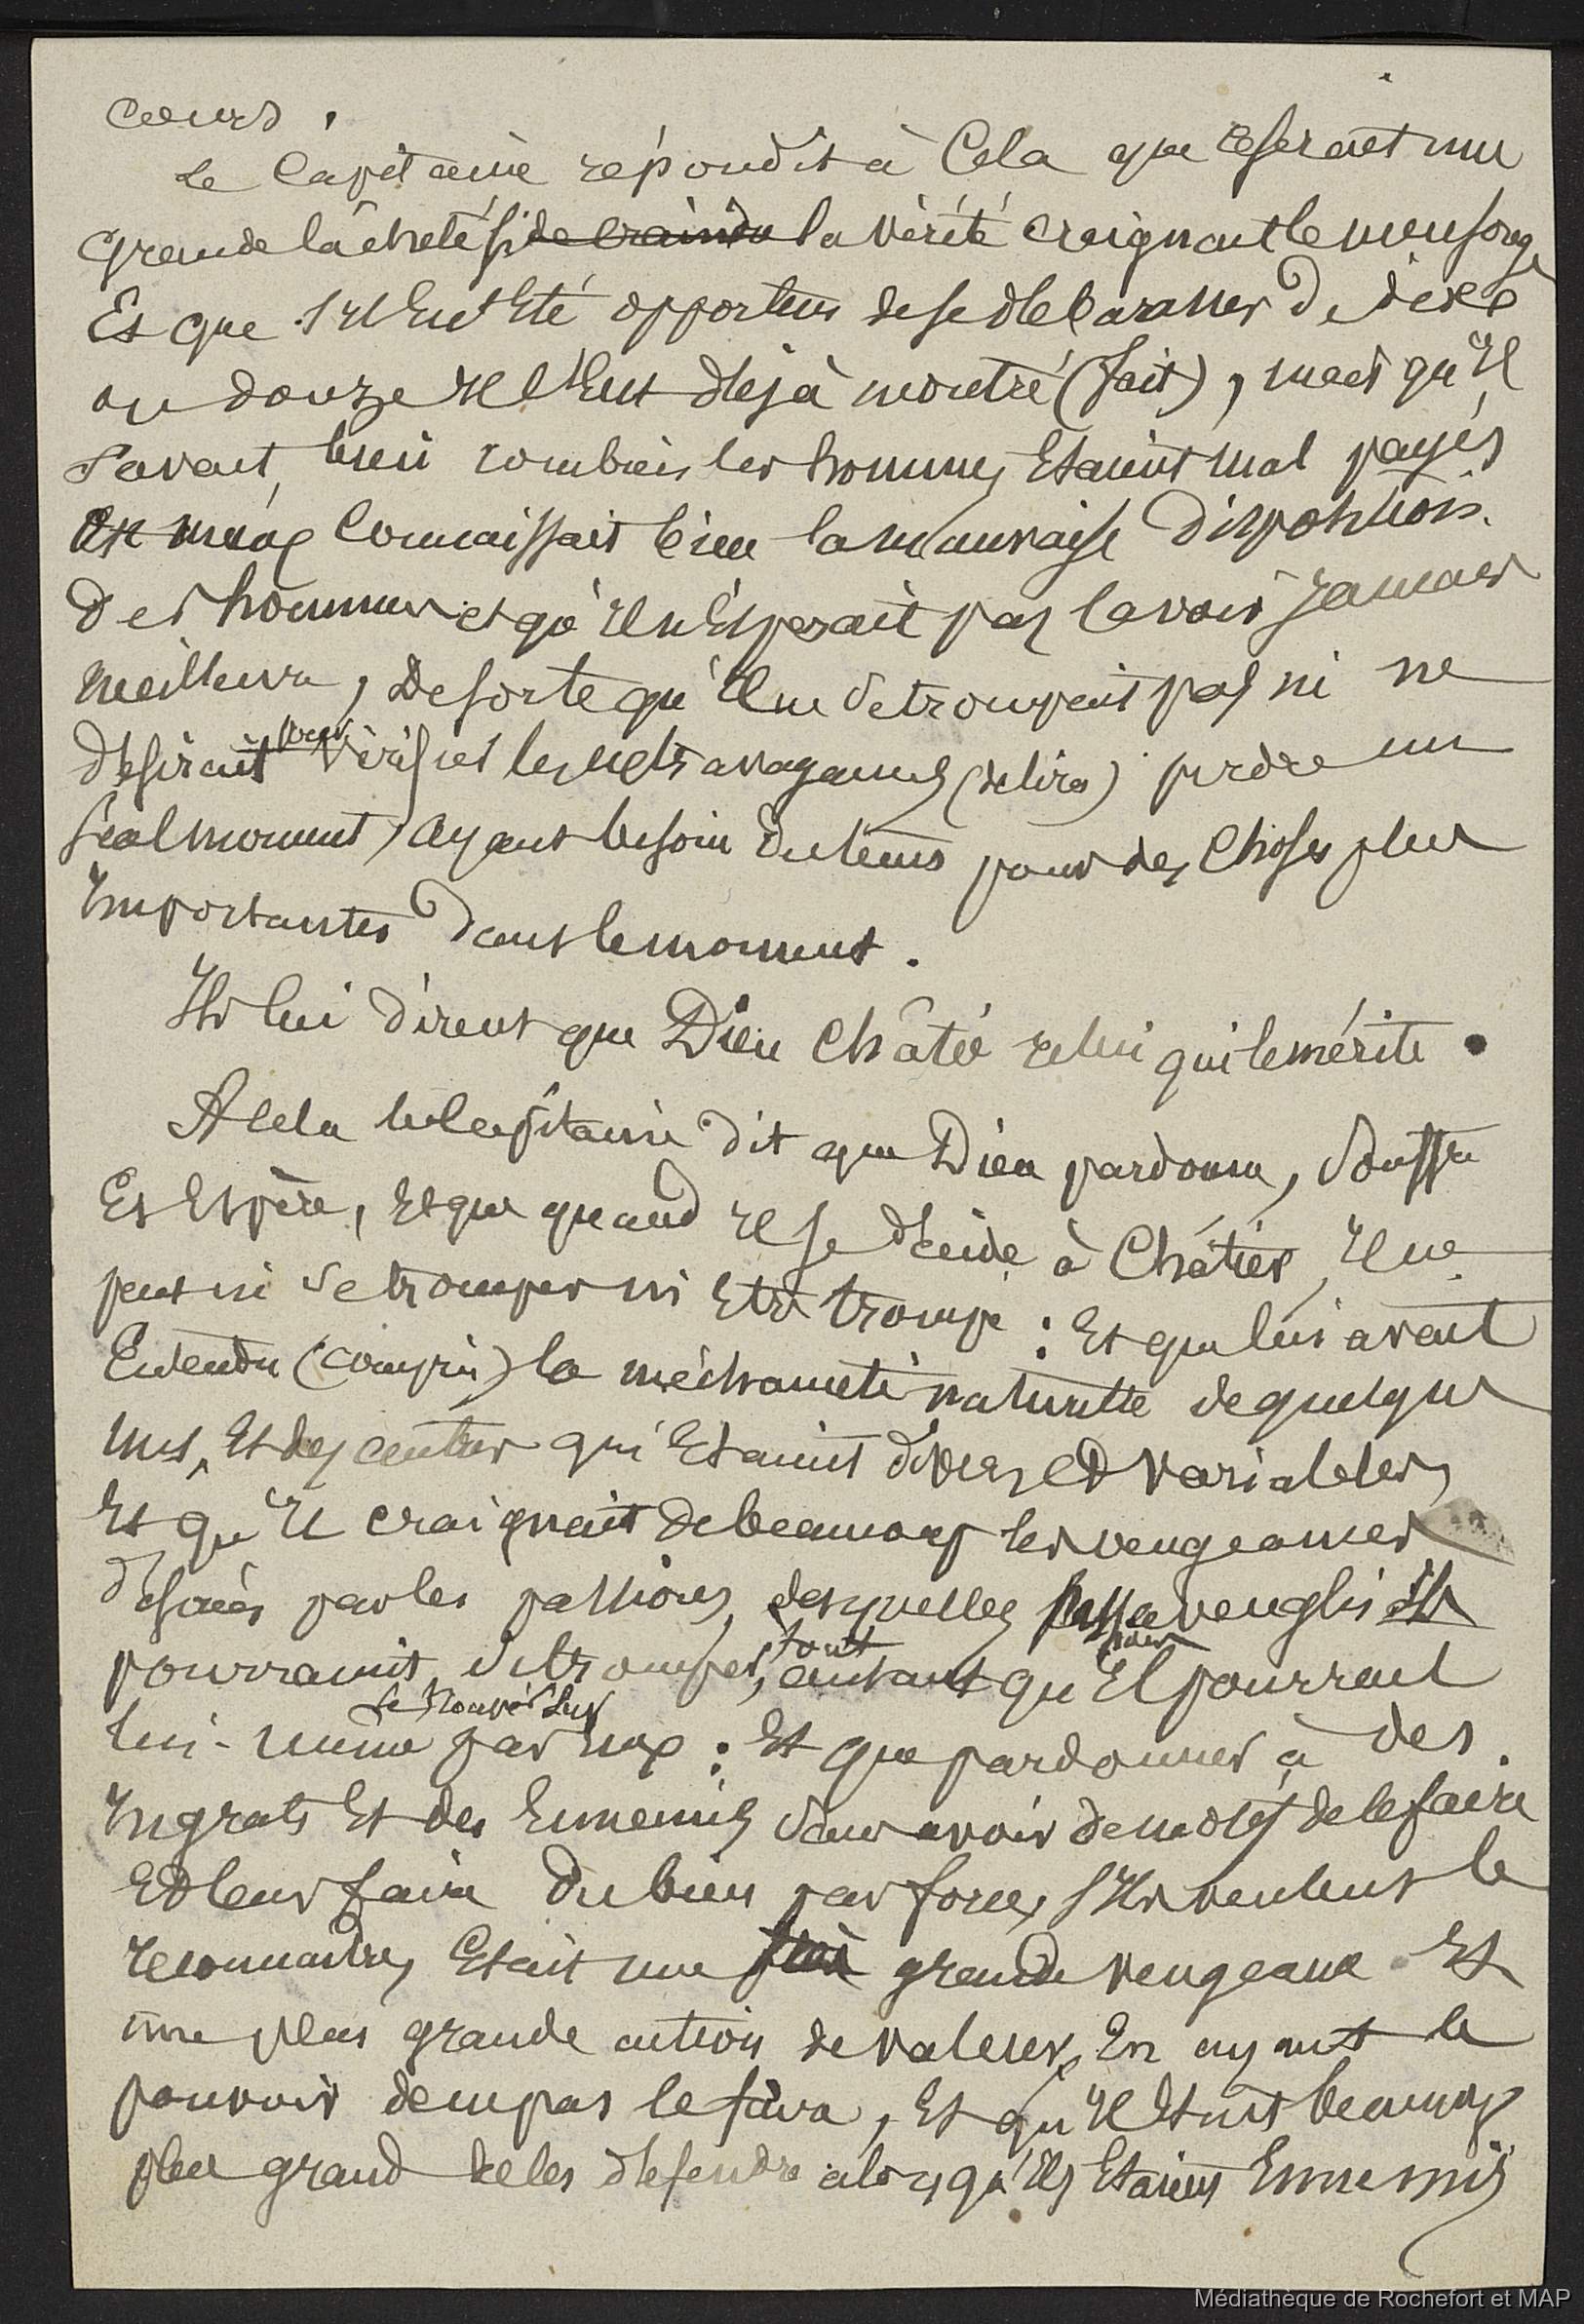 cours.
Le Capitaine répondit à Cela que ce serait une
grande lâcheté si de craindre la vérité craignant le mensonge
Et que s'il Eut Eté opportun de se debarasser de dix
ou douze Il l'Eut déjà montré (fait), mais qu'Il
savait bien combien les hommes Etaient mal payés
Et mieux Connaissait bien la mauvaise disposition
des hommes et qu'Il n'Esperait pas l'avoir Jamais
meilleure, De sorte qu'Il ne se trompait pas ni ne
désirait pour vérifier les extravagances (delire) perdre un
seul moment, Ayant besoin du tems pour des Choses plus
Importantes dans le moment.
Ils lui dirent que Dieu Châtie celui qui le mérite.
A cela le Capitaine dit que Dieu pardonne, souffre
Et Espère, Et que quand Il se décide à Châtier, Il ne
peut ni se tromper ni Etre trompé : Et que lui avait
Entendu (compris) la méchanceté naturelle de quelques
uns, Et des autres qui Etaient divers Et variables,
Et qu'Il craignait de beaucoup les vengeances
désirées par les passions, desquelles aveuglés Ils
pourraient se tromper, tout autant qu'Il pourrait
se trouver sur
lui-même par eux : Et que pardonner à des
Ingrats Et des Ennemis sans avoir de motif de le faire
Et leur faire du bien par force, s'Ils veulent le
reconnaitre, Etait une grande vengeance Et
une plus grande action de valeur, En ayant le
pouvoir de ne pas le faire, Et qu'Il Etait beaucoup
plus grand de les défendre alors qu'Ils Etaient Ennemis
Médiathèque de Rochefort et MAP